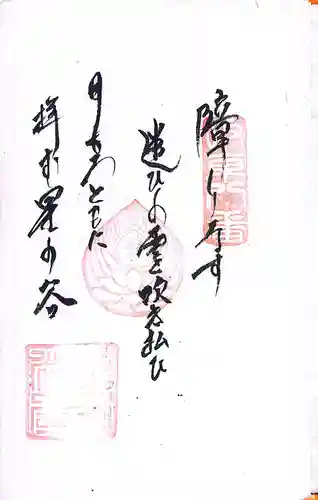 障りなす
迷ひの雲を吹き払ひ
月もろともに
拝む星の谷